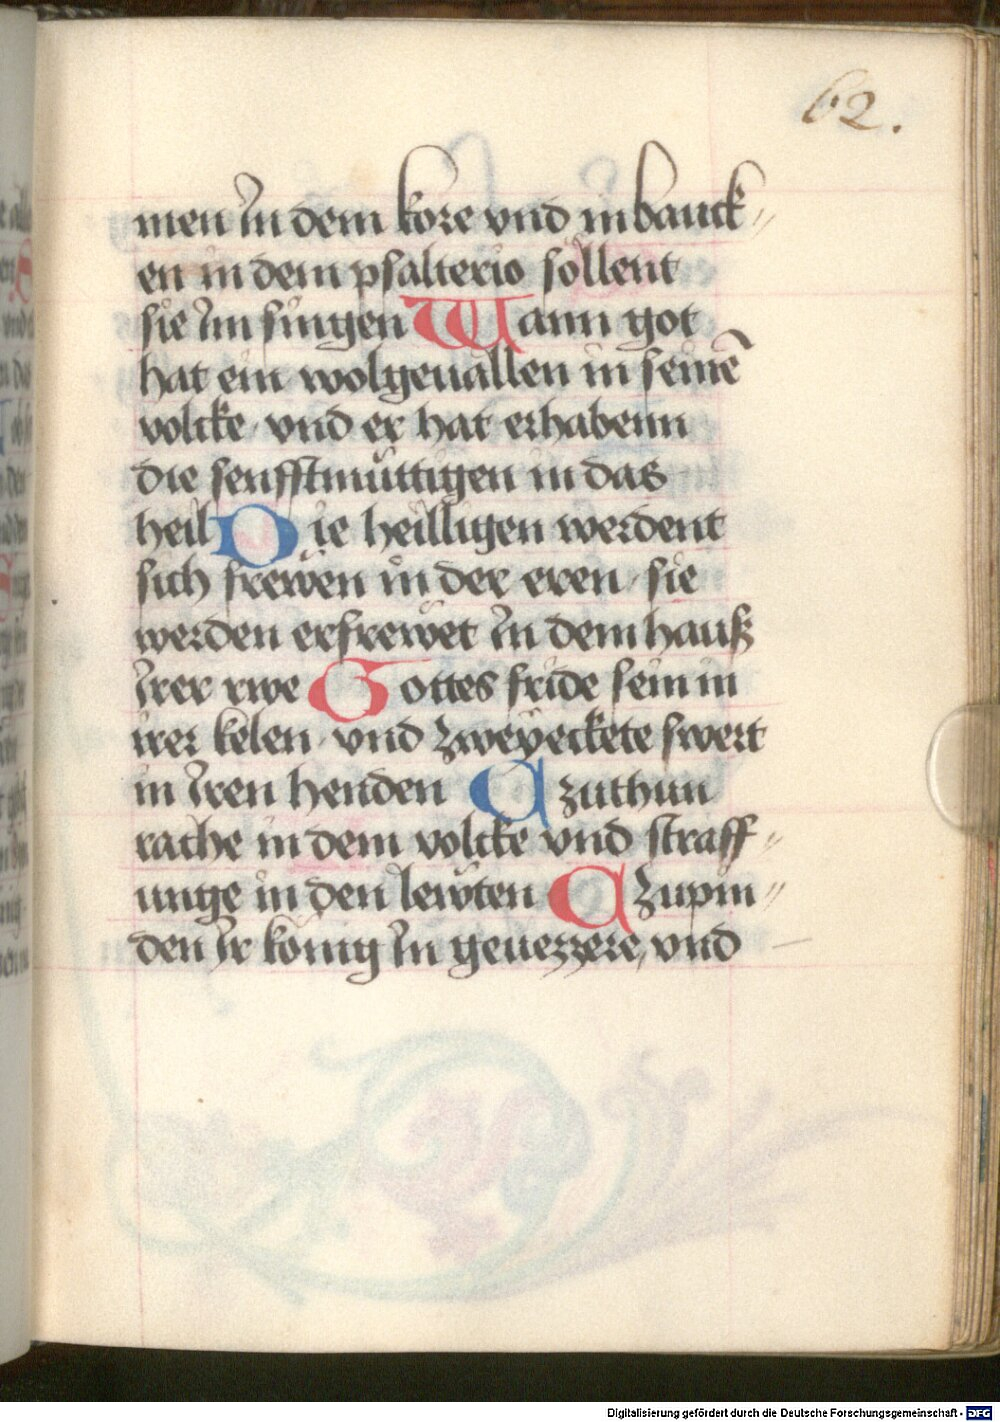 62.
men in dem kore vnd in bauck„
en in dem psalterio sollent
sie im singen Wann got
hat ein wolgeuallen in seinē
volcke vnd er hat erhabenn
die senfftmüttigen in das
heil Die heilligen werdent
sich frewen in der eren · sie
werden erfrewet in dem hauß
irer rwe Gottes fride sein in
irer kelen · vnd zweyeckete swert
in iren henden C zuthun
rache in dem volcke vnd straff„
unge in den lewten C zupin„
den ir könig in geuezzere, vnd
Digitalisierung gefördert durch die Deutsche Forschungsgemeinschaft - DFG